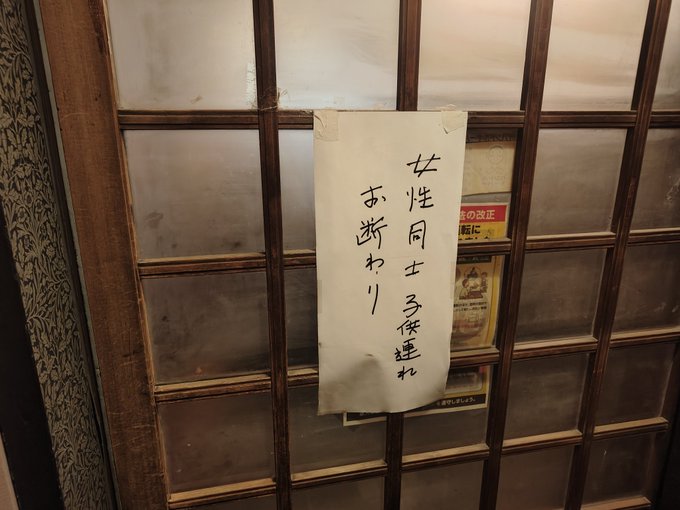 女性同士 子供連れ
お断わり
法の改正
転に
を遵守しましょう。